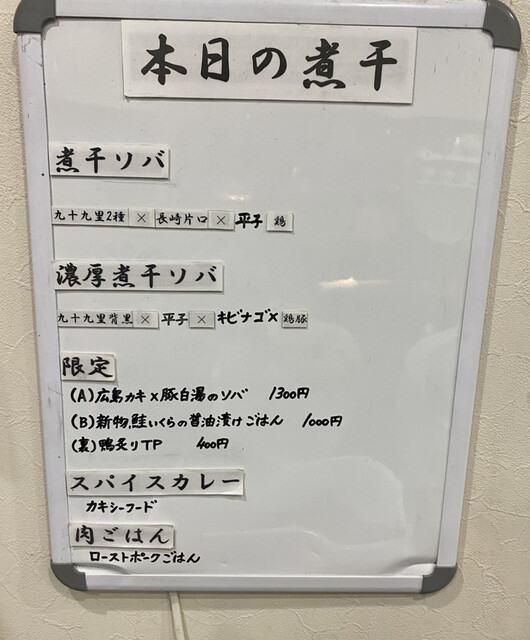 本日の煮干
煮干ソバ
九十九里2種 × 長崎片口 × 平子 鶏
濃厚煮干ソバ
九十九里背黒 × 平子 × キビナゴ× 鶏豚
限定
(A)広島カキ×豚白湯のソバ 1300円
(B)新物,鮭いくらの醤油漬けごはん 1000円
(裏)鴨炙りTP 400円
スパイスカレー
カキシーフード
肉ごはん
ローストポークごはん